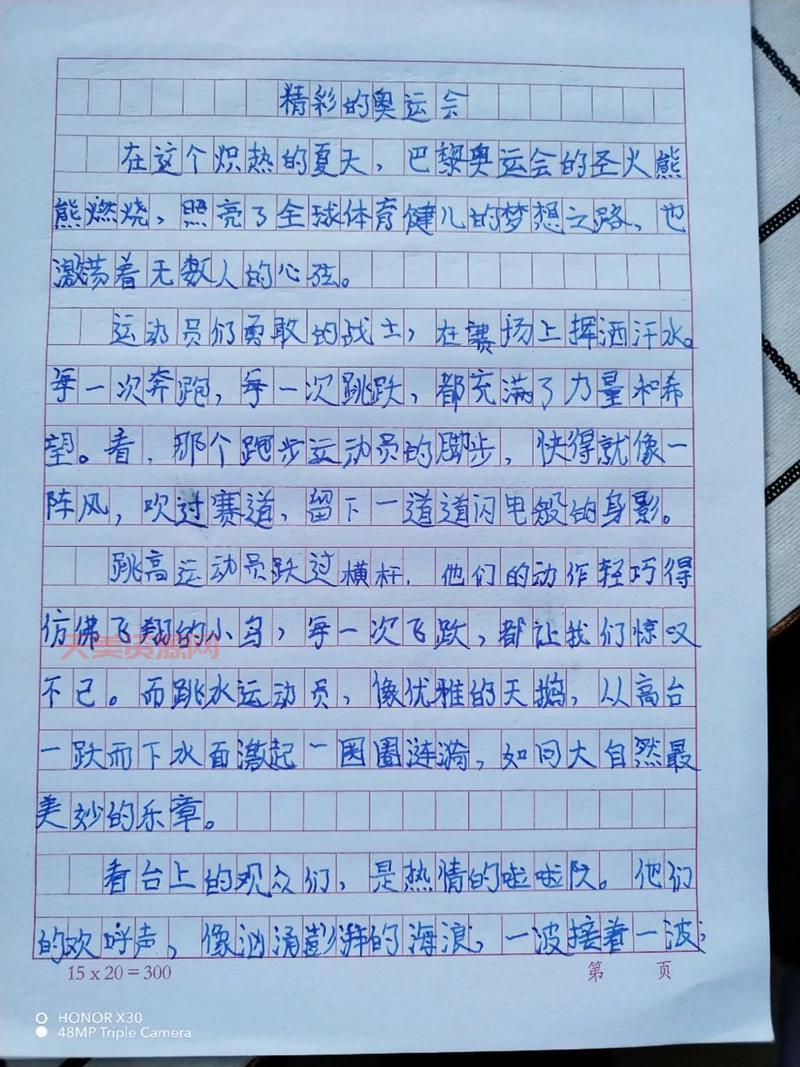 精彩的奥运会
在这个炽热的夏天，巴黎奥运会的圣火熊
熊燃烧，照亮了全球体育健儿的梦想之路，也
激荡着无数人的心弦。
运动员们勇敢的战士，在赛场上挥洒汗水。
每一次奔跑，每一次跳跃，都充满了力量和希
望。看，那个跑步运动员的脚步，快得就像一
阵风，吹过赛道，留下一道道闪电般的身影。
跳高运动员跃过横杆，他们的动作轻巧得
仿佛飞翔的小鸟，每一次飞跃，都让我们惊叹
不已。而跳水运动员，像优雅的天鹅，从高台
一跃而下水面激起一圈圈涟漪，如同大自然最
美妙的乐章。
看台上的观众们，是热情的啦啦队。他们
的欢呼声，像汹涌澎湃的海浪，一波接着一波，
15 x 20 = 300 第 页
天美资源网
HONOR X30
48MP Triple Camera